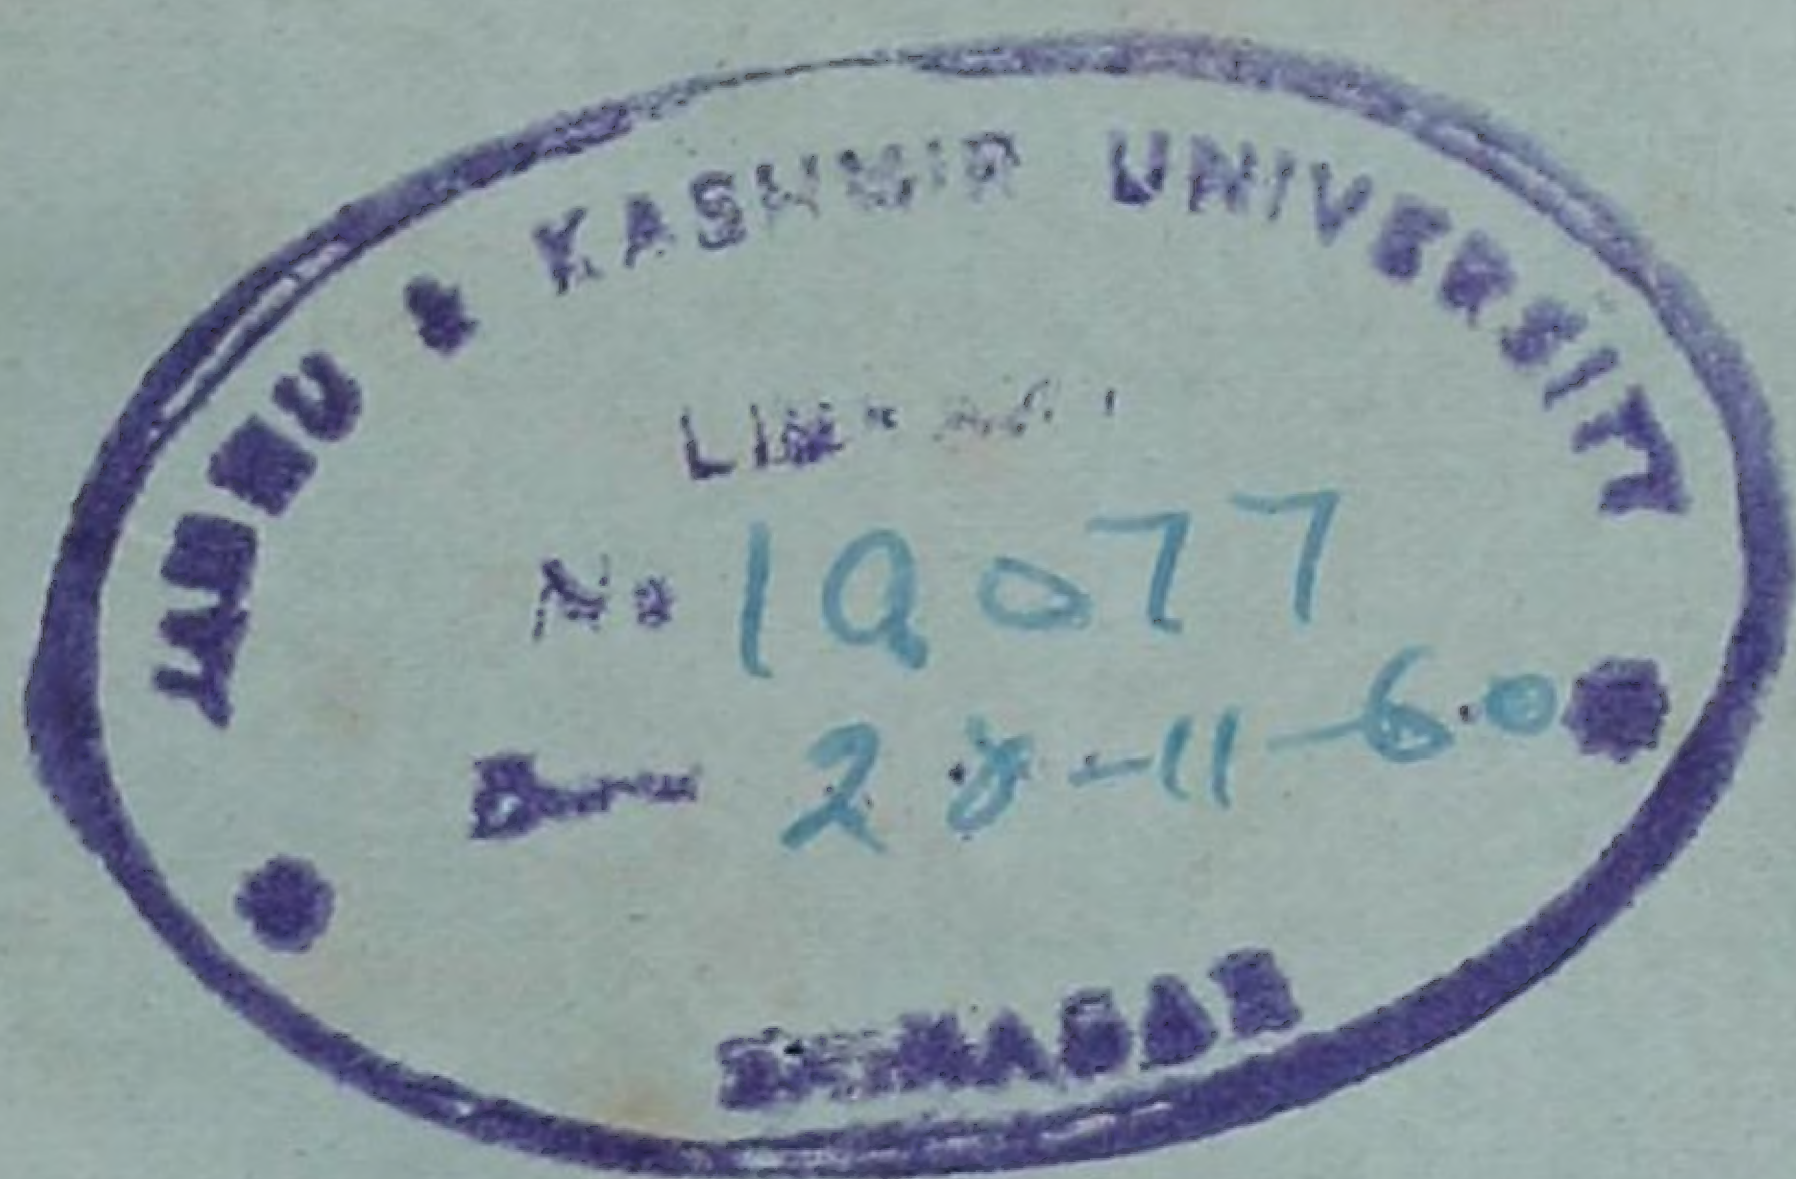 JAMMU & KASHMIR UNIVERSITY
LIBRARY
No 19077
28-11-60
SRINAGAR